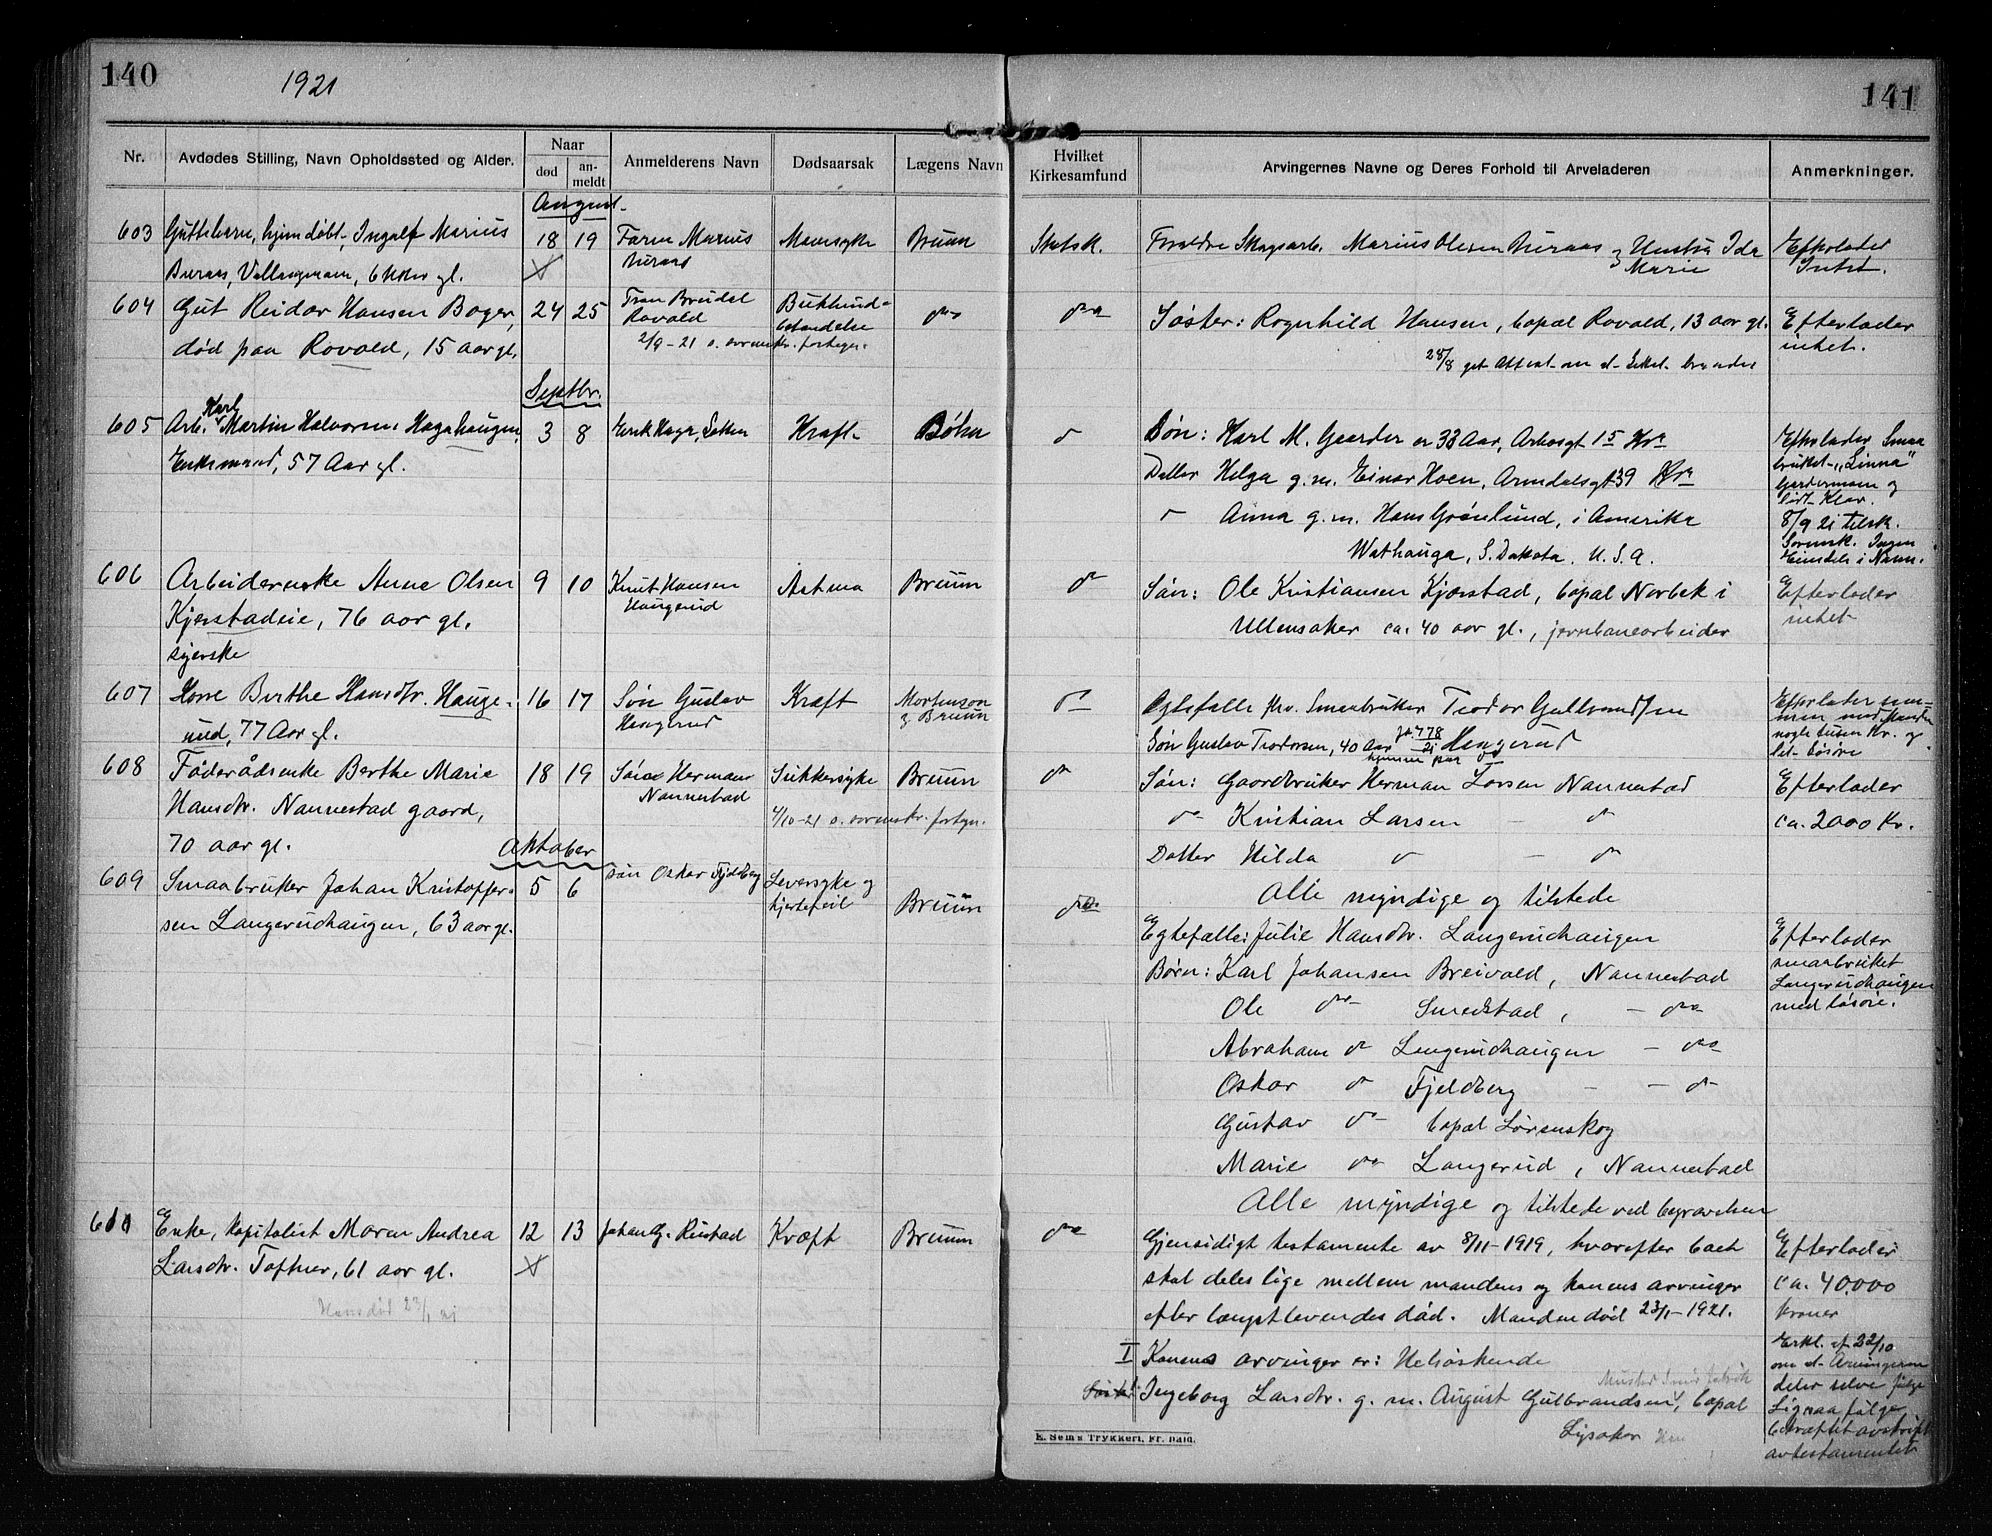 140
1921
141
Nr.
Avdødes Stilling, Navn Opholdssted og Alder.
Naar
død
an-
meldt
Anmelderens Navn
Dødsaarsak
Lægens Navn
Hvilket
Kirkesamfund
Arvingernes Navne og Deres Forhold til Arveladeren
Anmerkninger.
August
603 Guttebarn, hjemdøbt, Ingolf Marius 18 19 Faren Marius Mavesyke Bruun Statsk. Foreldre Skogsarb. Marius Olesen Buraas og Hustru Ida Efterlader
Buraas, 6 Uker gl. Buraas Marie Intet.
604 Gut Reidar Hansen Bager, 24 25 Bukhind- do do Søster: Ragnhild Hansen, bopæl Rovold, 13 aar gl. Efterlader
død paa Rovold, 15 aar gl. Rovold betændelse intet.
2/9-21 o. fortegn. 28/8 get Attest om at
Septbr.
605 Arb. Karl Martin Halvorsen Hagahaugen, 3 8 Erik Haga, Kræft Bøhn do Søn: Karl M. Gaarder er 33 Aar, 15 Kra Efterlader Smaa
Enkemand, 57 Aar gl. Datter Helga g.m. Einar Hoen, Arendalsgt 39 Kra bruket "Linna"
Gardermoen og
do Anna g.m. Hans Grønlund, i Amerika
8/9 21 tilsk.
S. Dakota. U.S.A. Sorensk. Ingen
606 Arbeiderenke Anne Olsen 9 10 Knut Hansen Astma Bruun do Søn: Ole Kristiansen Kjærstad, bopæl Norbek i Efterlader
Kjerstadeie, 76 aar gl. Haugerud Ullensaker ca. 40 aar gl., jernbanearbeider intet
syerske
607 Kone Berthe Hansdtr. Hauge- 16 17 Søn Gustav Kræft Mortenson do Egtefælle fhv. Smaabruker Teodor Gulbrandsen
rud, 77 Aar gl. Haugerud & Bruun Søn Gustav Teodorsen, 40 Aar Haugerud
608 Føderådsenke Berthe Marie 18 19 Søn Herman Sukkersyke Bruun do Søn: Gaardbruker Herman Larsen Nannestad Efterlader
Hansdtr. Nannestad gaard, Nannestad 4/10-21 o. sorenskr. fortegn. do Kristian Larsen — do ca. 2000 Kr.
70 aar gl. Datter Hilda do — do
Alle myndige og tilstede
Oktober
609 Smaabruker Johan Kristoffer- 5 6 søn Oskar Fjeldberg Leversyke og Bruun do Egtefælle: Julie Hansdtr. Langerudhaugen Efterlader
sen Langerudhaugen, 63 aar gl. hjertefeil Børn: Karl Johansen Breivold, Nannestad smaabruket
Ole do Smedstad, — do Langerudhaugen
med løsøre.
Abraham do Langerudhaugen — do
Oskar do Fjeldberg — — do
Gustav do bopæl Lørenskog
Marie do Langerud, Nannestad
Alle myndige og tilstede ved begravelsen
610 Enke, kapitalist Maren Andrea 12 13 Johan G. Ristad Kræft Bruun do Gjensidigt testamente av 8/11-1919, hvorefter boet Efterlader
Larsdtr. Toftner, 61 aar gl. skal deles lige mellem mandens og konens arvinger ca. 40.000
23/1 21 efter længstlevendes død. Manden død 23/1-1921. kroner
I Konens arvinger er: Helsøskende Erkl. af 22/10
om at Arvingerne
Ingeborg Larsdtr. g.m. August Gulbrandsen, bopæl deler selv
Lysaker bekræftet avskrift
av testamentet
E. Sems Trykkeri, Fr.hald.